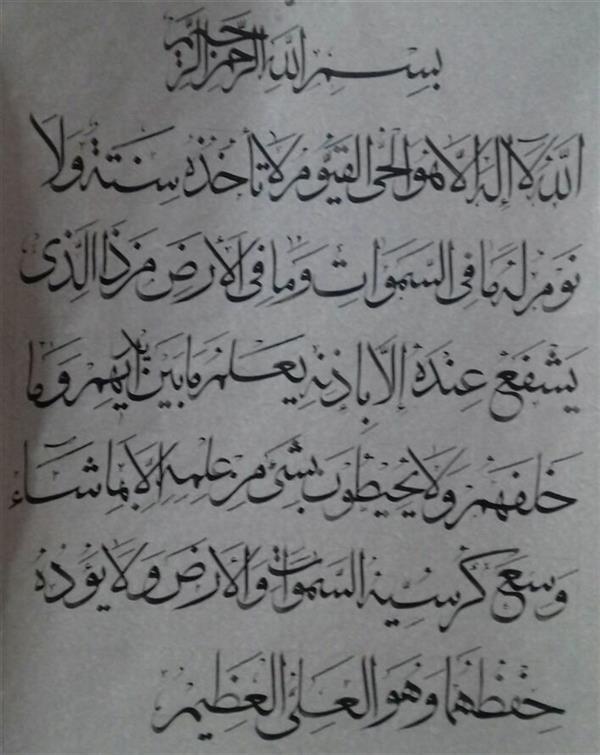 بسم الله الرحمن الرحيم
الله لا إله إلا هو الحي القيوم لا تأخذه سنة ولا
نوم له ما في السموات وما في الأرض من ذا الذي
يشفع عنده إلا بإذنه يعلم ما بين أيديهم وما
خلفهم ولا يحيطون بشيء من علمه إلا بما شاء
وسع كرسيه السموات والأرض ولا يؤده
حفظهما وهو العلي العظيم